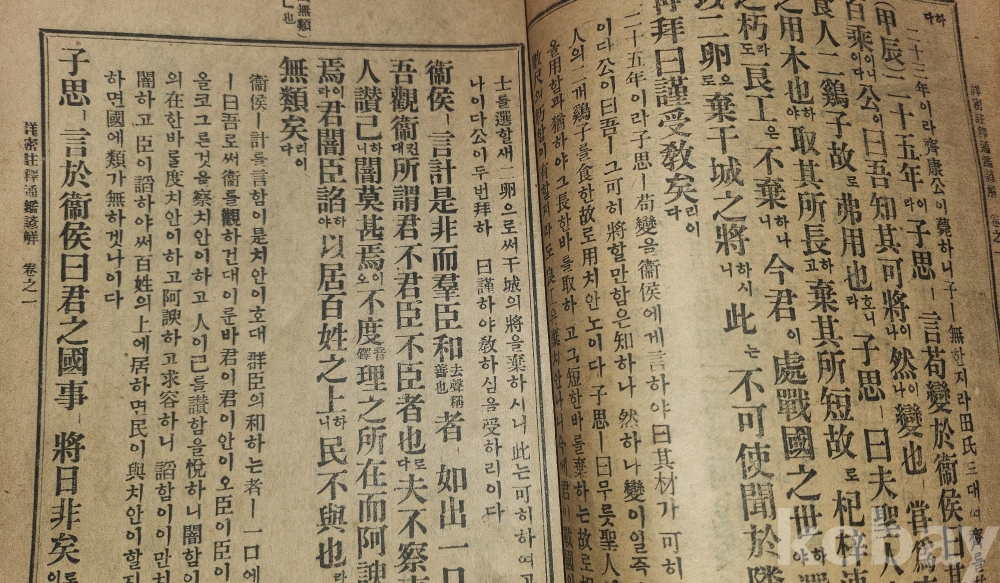 詳密註釋通鑑諺解
二十三年이라齊康公이薨하니子ㅣ無한지라田氏三대
(甲辰)二十五年이라子思ㅣ言苟變於衛侯曰其
百乘이니이다公이曰吾知其可將이나然이나變也ㅣ嘗爲
食人二鷄子故로弗用也호라子思ㅣ曰夫聖人
之用木也야取其所長하고棄其所短故로杞梓
之朽라도良工은不棄하나니今君이處戰國之世하야
以二卵으로棄干城之將하시니此는不可使聞於隣
再拜曰謹受敎矣리이다
二十五年이라子思ㅣ苟變을衛侯에게言하야曰其材가可히
이다公이曰吾ㅣ그可히將할만함은知하나然하나變이일즉
人의二個鷄子를食한故로用치안노이다子思ㅣ曰무릇聖人
을用함과猶하야그長한바를取하고그短한바를棄하는故로
數尺의朽함이有할지라도良
士를選할새二卵으로써干城의將을棄하시니此는可히하여
나이다公이두번拜하야曰謹하야敎하심을受하리이다
衛侯ㅣ言計是非而羣臣和去聲稱善也者ㅣ如出一口
吾觀衛컨대所謂君不君臣不臣者也로다夫不察
人讚己하니闇莫甚焉이오不度音鐸理之所在而阿諛
焉이라君闇臣諂하야以居百姓之上하니民不與也라
無類矣리이다
衛侯ㅣ計를言함이是치안이호대群臣의和하는者ㅣ一口에
ㅣ曰吾로써衛를觀하건대이룬바君이君이안이오臣이臣이
올코그른것을察치안이하고人이己를讃함을悅하니闇함이
의在한바를度치안이하고阿諛하고求容하니諂함이이만치
闇하고臣이諂하야써百姓의上에居하면民이與치안이할지
하면國에類가無하겟나이다
子思ㅣ言於衛侯曰君之國事ㅣ將日非矣
詳密註釋通鑑諺解 卷之一
kobay